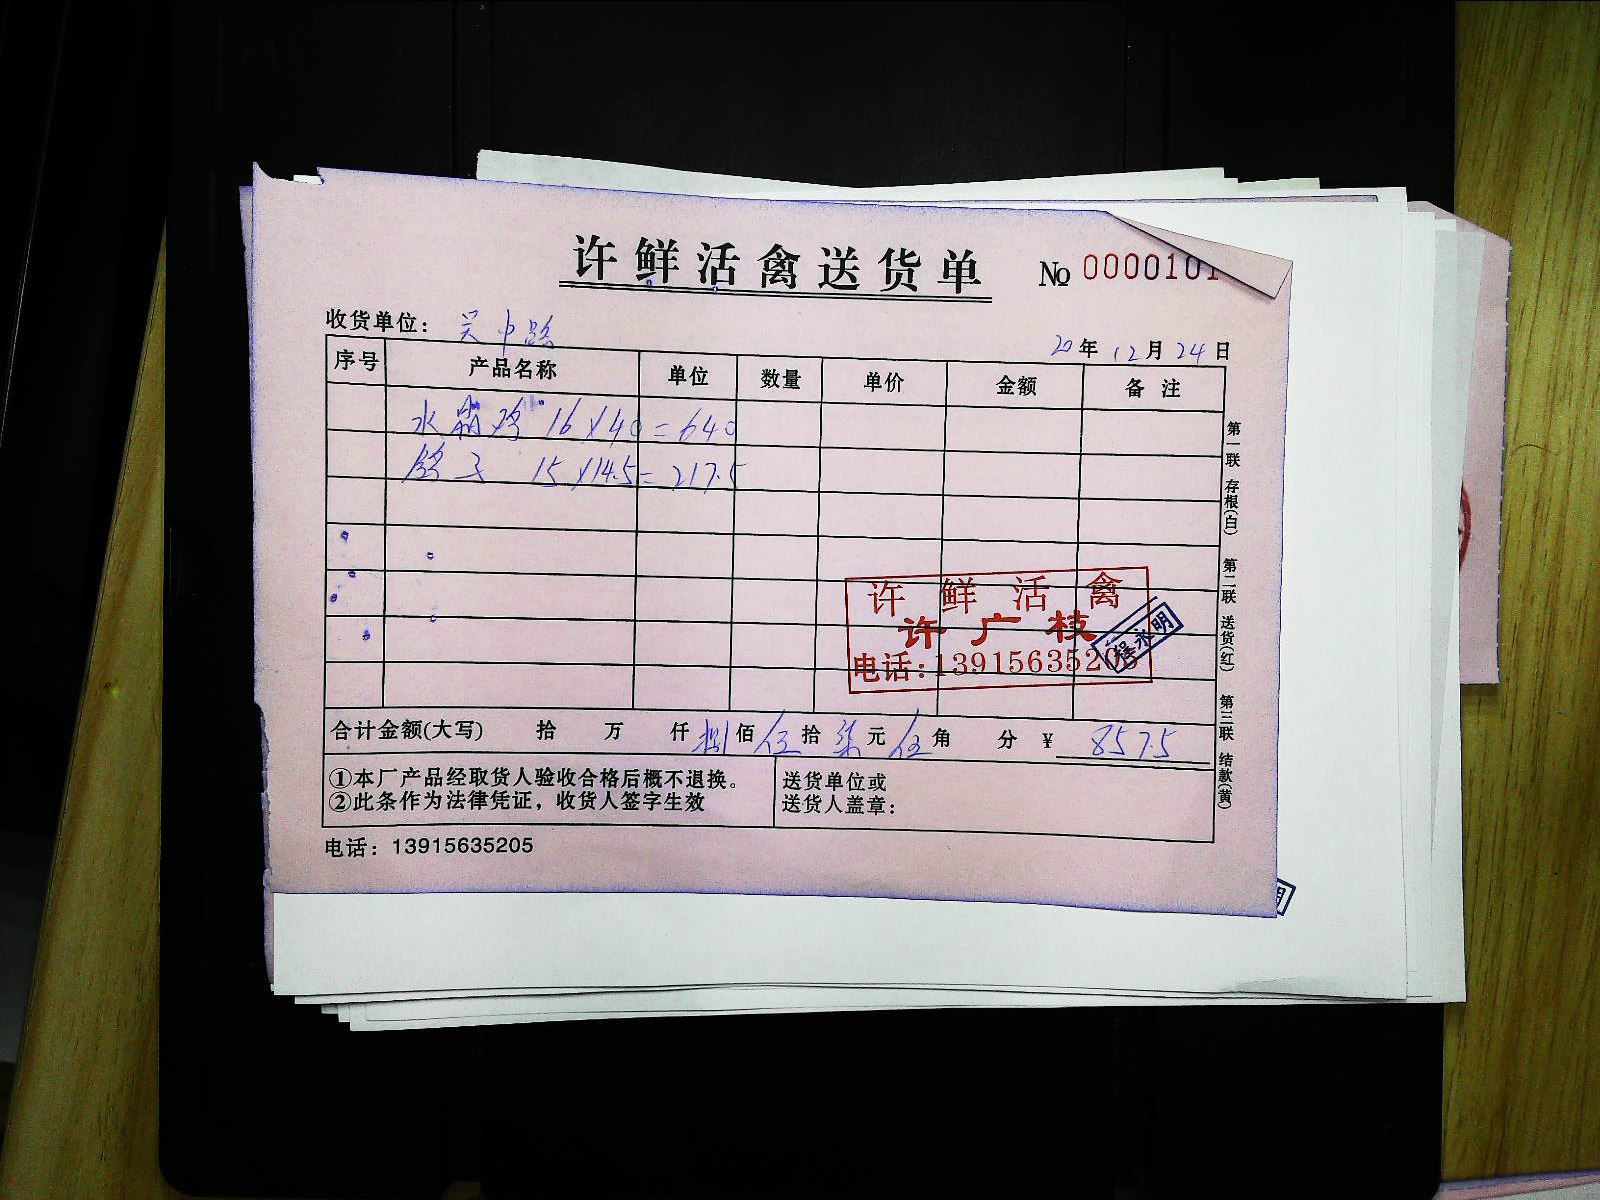 许鲜活禽送货单 No 0000101
收货单位： 吴中路
20年12月24日
序号 产品名称 单位 数量 单价 金额 备注
水霸鸡 16×40=640
鸽子 15×14.5=217.5
许鲜活禽
许广枝
电话:13915635205
程永明
合计金额(大写) 拾 万 仟 捌佰伍拾柒元伍角 分 ¥ 857.5
①本厂产品经取货人验收合格后概不退换。
②此条作为法律凭证，收货人签字生效
送货单位或
送货人盖章：
电话：13915635205
第一联 存根(白) 第二联 送货(红) 第三联 结款(黄)
明